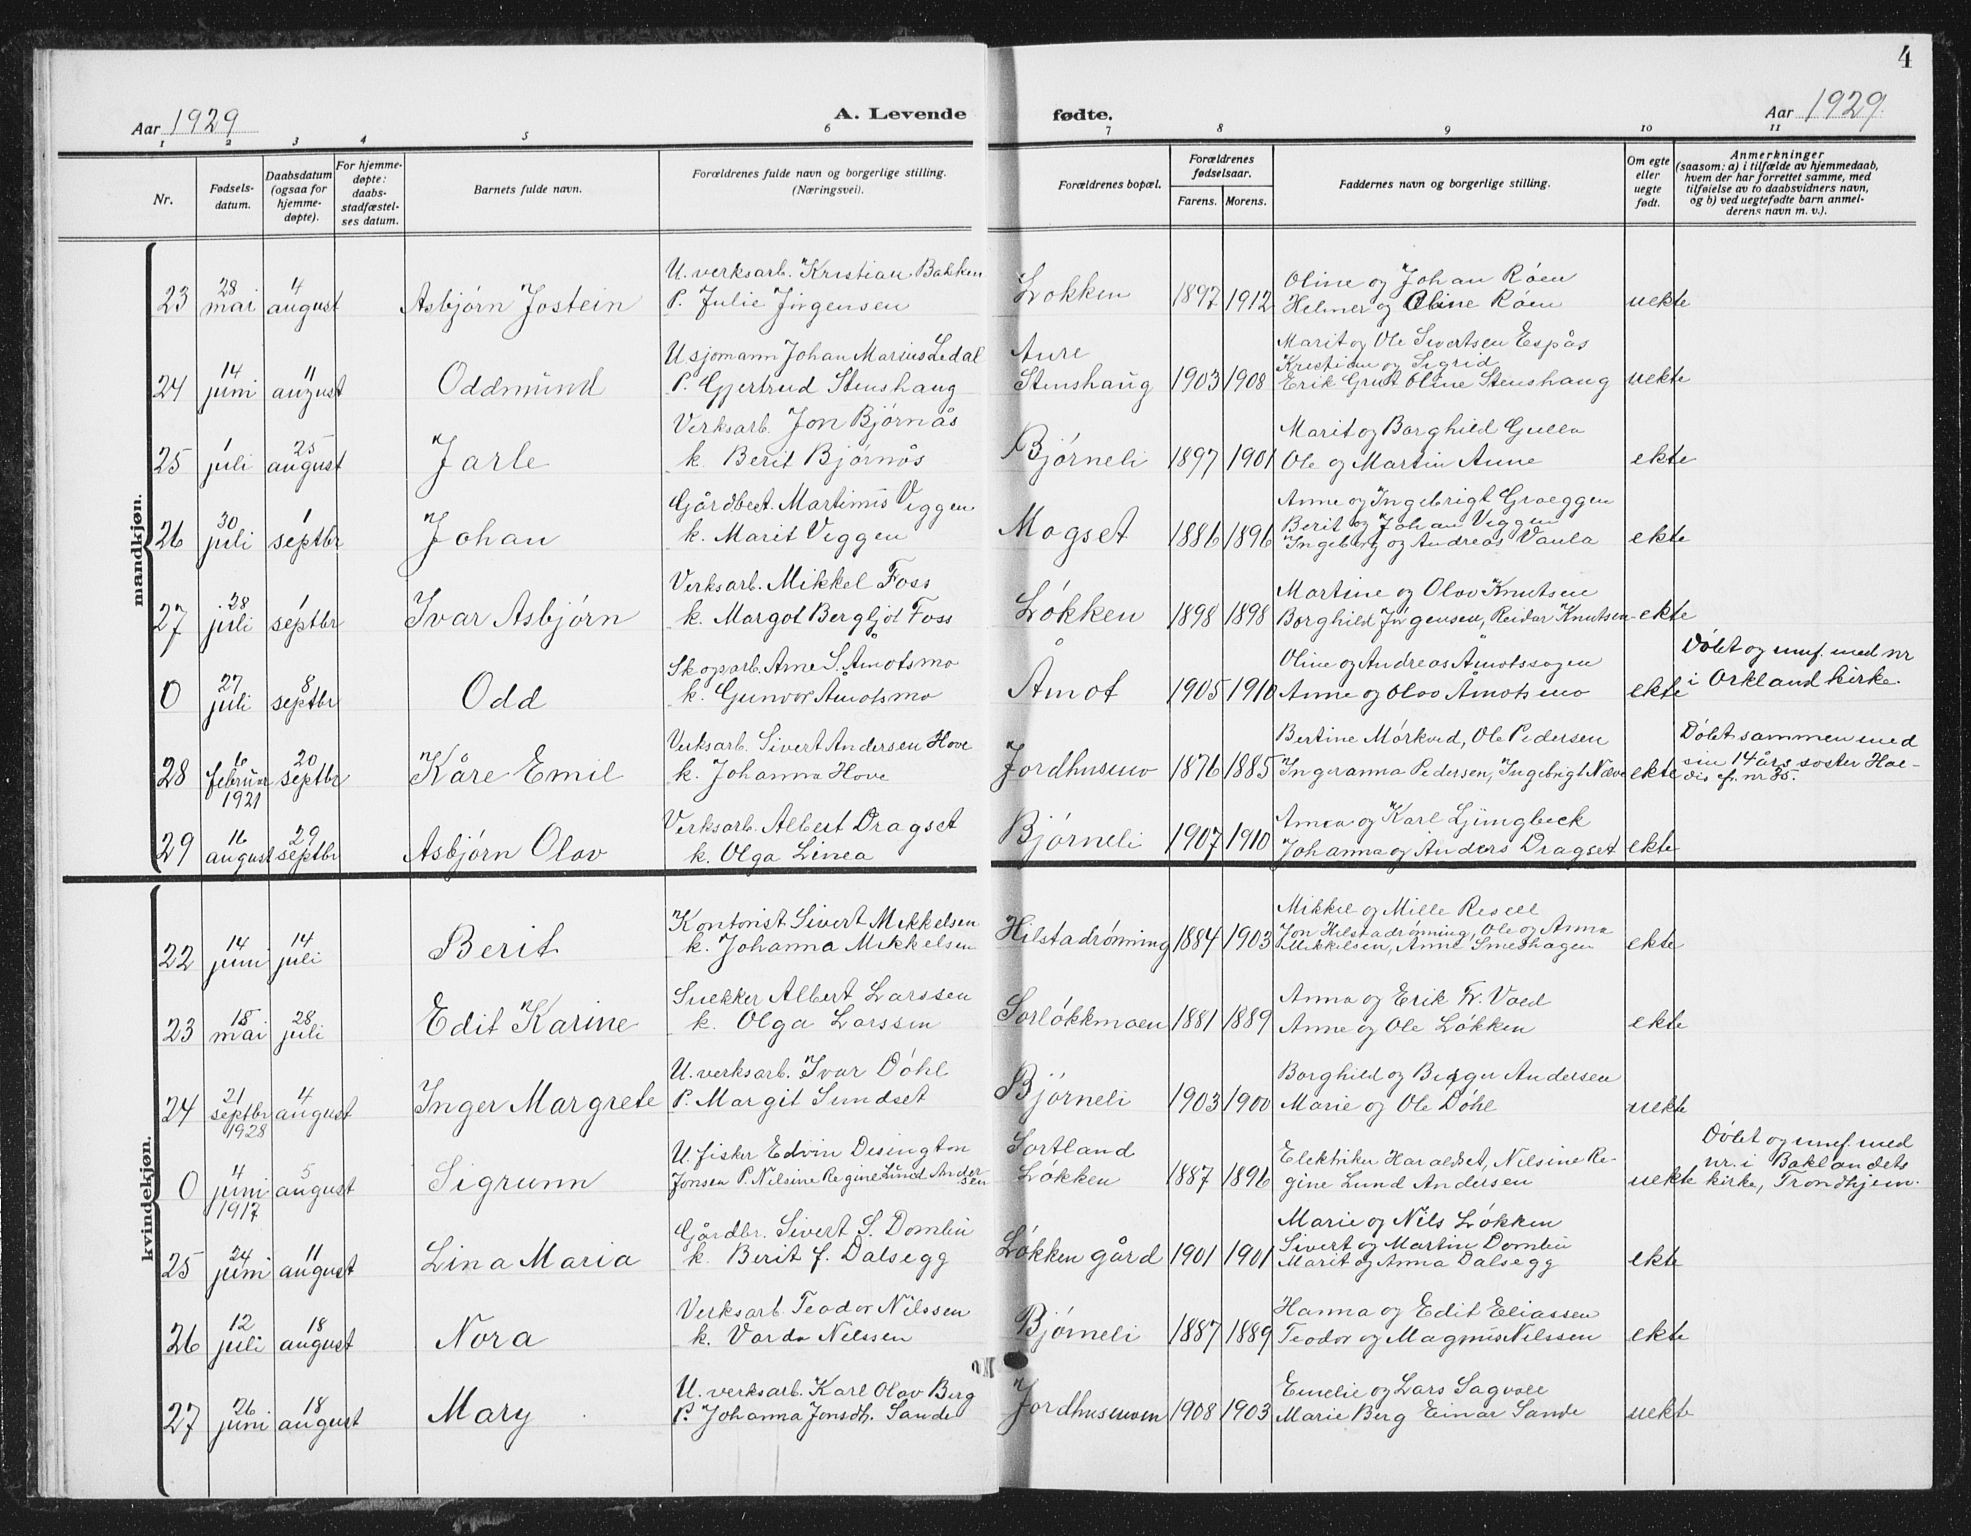 4
Aar 1929 A. Levende fødte. Aar 1929.
1 2 3 4 5 6 7 8 9 10 11
Nr.
Fødsels-
datum.
Daabsdatum
(ogsaa for
hjemme-
døpte).
For hjemme-
døpte:
daabs-
stadfæstel-
ses datum.
Barnets fulde navn.
Forældrenes fulde navn og borgerlige stilling.
(Næringsvei).
Forældrenes bopæl.
Forældrenes
fødselsaar.
Farens. Morens.
Faddernes navn og borgerlige stilling.
Om egte
eller
uegte
født.
Anmerkninger
(saasom: a) i tilfælde av hjemmedaab,
hvem der har forrettet samme, med
tilføielse av to daabsvidners navn,
og b) ved uegtefødte barn anmel-
derens navn m. v.).
mandkjøn.
23 28 mai 4 august Asbjørn Jostein
U. verksarb. Kristian Bakken
P. Julie Jørgensen
Løkken 1897 1912
Oline og Johan Røen
Helmer og Oline Røen
uekte
24 14 juni 11 august Oddmund
U sjømann Johan Marius Ledal
P. Gjertrud Stenshaug
Aure
Stenshaug 1903 1908
Marit og Ole Sivertsen Espås
Kristian og Sigrid
Erik Grut Oline Stenshaug
uekte
25 1 juli 25 august Jarle
Verksarb. Jon Bjørnås
k. Berit Bjørnås
Bjørneli 1897 1901
Marit og Borghild Gulla
Ole og Martin Aune
ekte
26 30 juli 1 septbr Johan
Gårdbest. Martinus Viggen
k. Marit Viggen
Mogset 1886 1896
Anne og Ingebrigt Groeggen
Berit og Johan Viggen
Ingeborg og Andreas Vaula
ekte
27 28 juli 1 septbr Ivar Asbjørn
Verksarb. Mikkel Foss
k. Margot Bergljot Foss
Løkken 1898 1898
Martine og Olav Knutsen
Borghild Jørgensen, Reidar Knutsen
ekte
0 27 juli 8 septbr Odd
Skogsarb. Arne S. Åmotsmo
k. Gunvor Åmotsmo
Åmot 1905 1910
Oline og Andreas Åmotssagen
Anne og Olav Åmotsmo
ekte
Døbt og innf. med nr
i Orkland kirke.
28 6 februar 1921 20 septbr Kåre Emil
Verksarb. Sivert Andersen Hove
k. Johanna Hove
Jordhusmo 1876 1885
Bertine Mørkved, Ole Pedersen
Ingeranna Pedersen, Ingebrigt Næve
ekte
Døbt sammen med
sin 14 års søster Hae-
dis cfr. nr 35.
29 16 august 29 septbr Asbjørn Olav
Verksarb. Albert Dragset
k. Olga Linea
Bjørneli 1907 1910
Anna og Karl Ljungbeck
Johanna og Anders Dragset
ekte
kvindekjøn.
22 14 juni 14 juli Berit
Kontorist Sivert Mikkelsen
k. Johanna Mikkelsen
Hilstadrønning 1884 1903
Mikkel og Mille Resell
Jon Hilstadrønning, Ole og Anna
Mikkelsen, Anne Smedhagen
ekte
23 15 mai 28 juli Edit Karine
Snekker Albert Larssen
k. Olga Larssen
Sørløkkmoen 1881 1889
Anna og Erik Fr. Voed
Anne og Ole Løkken
ekte
24 21 septbr 1928 4 august Inger Margrete
U. verksarb. Ivar Døhl
P. Margit Sundset
Bjørneli 1903 1900
Borghild og Birger Andersen
Marie og Ole Døhl
uekte
0 4 juni 1917 5 august Sigrunn
U. fisker Edvin Desington
Jonsen P. Nilsine Regine Lund Ander
sen
Sortland
Løkken 1887 1896
Elektriker Haraldset, Nilsine Re-
gine Lund Andersen
uekte
Døbt og innf. med
nr. i Baklandets
kirke, Trondhjem.
25 24 juni 11 august Lina Maria
Gårdbr. Sivert S. Dombu
k. Berit f. Dalsegg
Løkken gård 1901 1901
Marie og Nils Løkken
Sivert og Martin Dombu
Marit og Anna Dalsegg
ekte
26 12 juli 18 august Nora
Verksarb. Teodor Nilssen
k. Varda Nilssen
Bjørneli 1887 1889
Hanna og Edit Eliassen
Teodor og Magnus Nilssen
ekte
27 26 juni 18 august Mary
U. verksarb. Karl Olav Berg
P. Johanna Jonsdh. Sande
Jordhusmoen 1908 1903
Emelie og Lars Sagvole
Marie Berg Einar Sande
uekte